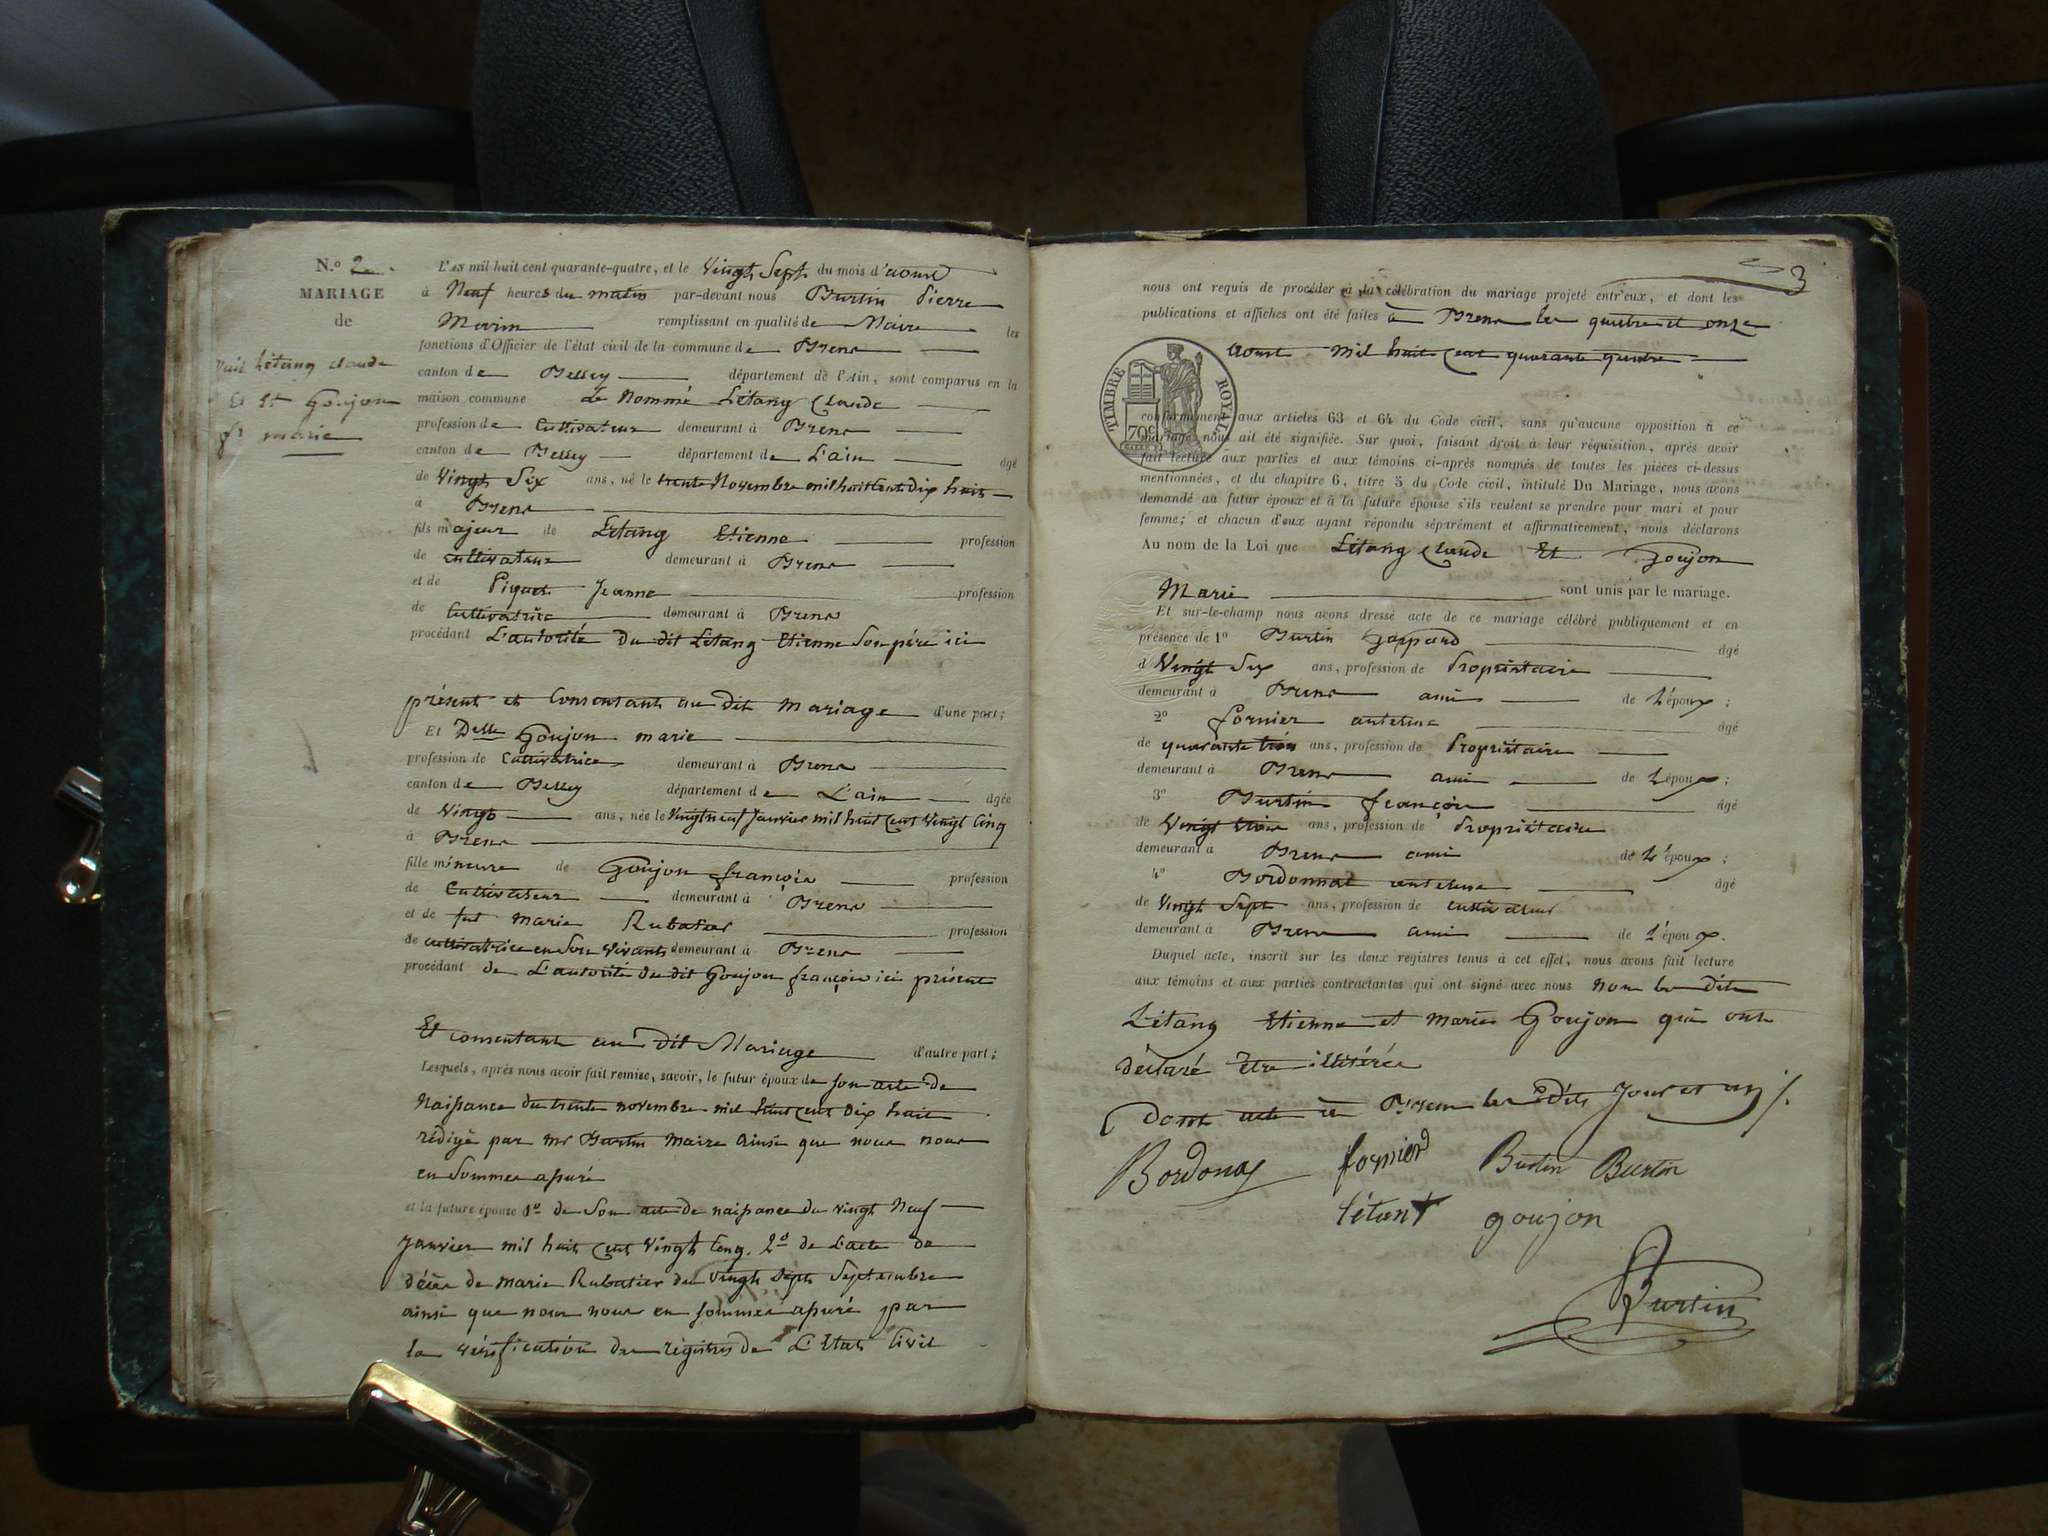 N.º 2
MARIAGE
de
Létang Claude
Et Goujon
marie
L'AN mil huit cent quarante-quatre, et le Vingt Sept du mois d'aoust
à Neuf heures du matin par-devant nous Burtin Pierre
remplissant en qualité de Maire les
fonctions d'Officier de l'état civil de la commune de Brens
canton de Belley département de l'Ain, sont comparus en la
maison commune Le Nommé Létang Claude
profession de Cultivateur demeurant à Brens
canton de Belley département de L'ain âgé
de Vingt Six ans, né le trente Novembre mil huit Cent dix huit
à Brens
fils majeur de Létang Etienne profession
de cultivateur demeurant à Brens
et de Piquet Jeanne profession
de Cultivatrice demeurant à Brens
procédant L'autorité Du dit Létang Etienne Son père ici
présent et Consentant au dit Mariage d'une part;
Et Delle Goujon marie
profession de Cultivatrice demeurant à Brens
canton de Belley département de L'ain âgée
de Vingt ans, née le Vingt neuf Janvier mil huit Cent Vingt Cinq
à Brens
fille mineure de Goujon françois profession
de Cultivateur demeurant à Brens
et de fut marie Rubatier profession
de cultivatrice en Son Vivant demeurant à Brens
procédant de L'autorité du dit Goujon françois ici présent
Et consentant au dit Mariage d'autre part;
Lesquels, après nous avoir fait remise, savoir, le futur époux de son acte de
Naissance du trente novembre mil huit Cent Dix huit
rédigé par mr Burtin Maire Ainsi que nous nous
en Sommes assuré
et la future épouse 1º de Son acte de naissance du vingt Neuf
Janvier mil huit Cent Vingt Cinq. 2º de L'acte de
décès de marie Rubatier du vingt Sept Septembre
ainsi que nous nous en sommes assuré par
la vérification des registres de L'Etat Civil
3
nous ont requis de procéder à la célébration du mariage projeté entr'eux, et dont les
publications et affiches ont été faites à Brens les quatre et onze
aoust mil huit Cent quarante quatre
TIMBRE ROYAL
70c
conformément aux articles 63 et 64 du Code civil, sans qu'aucune opposition à ce
mariage nous ait été signifiée. Sur quoi, faisant droit à leur réquisition, après avoir
fait lecture aux parties et aux témoins ci-après nommés de toutes les pièces ci-dessus
mentionnées, et du chapitre 6, titre 5 du Code civil, intitulé Du Mariage, nous avons
demandé au futur époux et à la future épouse s'ils veulent se prendre pour mari et pour
femme; et chacun d'eux ayant répondu séparément et affirmativement, nous déclarons
Au nom de la Loi que Létang Claude Et Goujon
Marie sont unis par le mariage.
Et sur-le-champ nous avons dressé acte de ce mariage célébré publiquement et en
présence de 1º Burtin Gaspard âgé
d Vingt Six ans, profession de Propriétaire
demeurant à Brens ami de L'époux;
2º fornier antelme âgé
de quarante trois ans, profession de Propriétaire
demeurant à Brens ami de L'époux;
3º Burtin françois âgé
de Vingt trois ans, profession de Propriétaire
demeurant à Brens ami de L'époux;
4º Bordonnat antelme âgé
de Vingt Sept ans, profession de cultivateur
demeurant à Brens ami de L'époux.
Duquel acte, inscrit sur les deux registres tenus à cet effet, nous avons fait lecture
aux témoins et aux parties contractantes qui ont signé avec nous Non les dits
Létang Etienne et Marie Goujon qui ont
déclaré être illitérés
Dont acte à Brens les dits Jour et an
Bordona fornier Burtin Burtin
létant goujon
Burtin